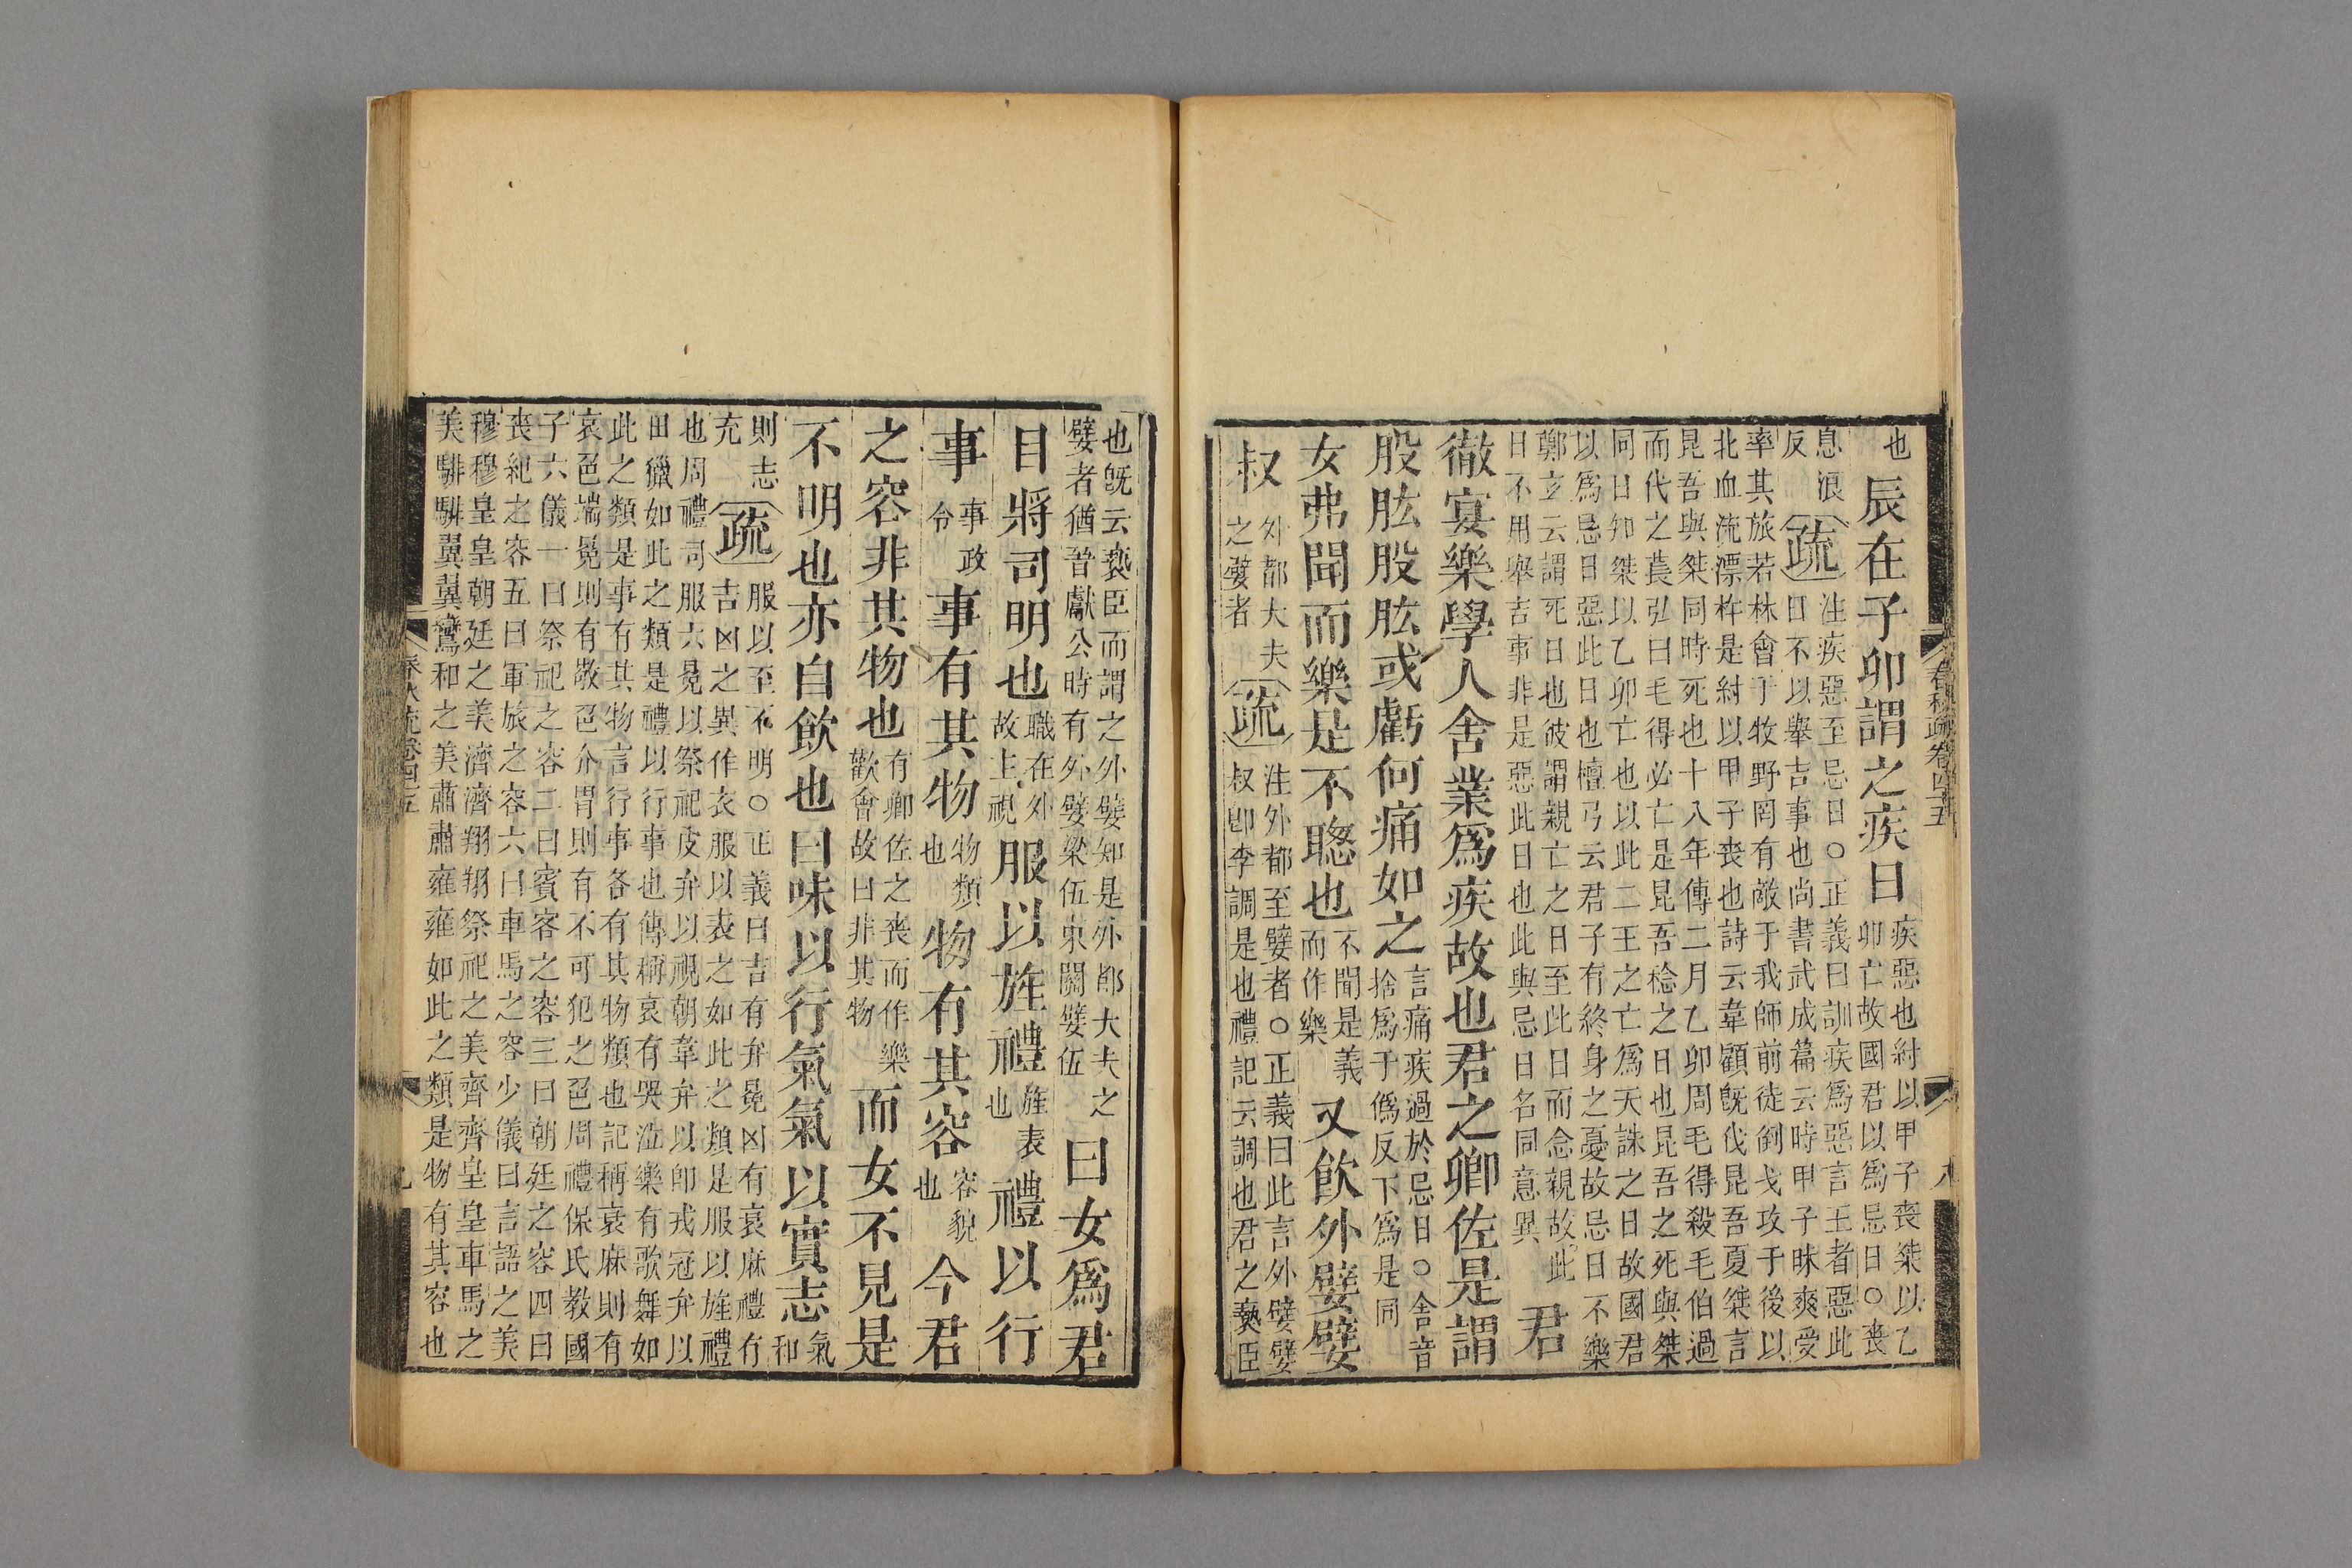 也辰在子卯謂之疾日疾惡也紂以甲子喪桀以乙
卯亡故國君以爲忌日○喪
息浪反疏注疾惡至忌日○正義曰訓疾爲惡言王者惡此
日不以舉吉事也尚書武成篇云時甲子昧爽受
率其旅若林會于牧野罔有敵于我師前徒倒戈攻于後以
北血流漂杵是紂以甲子喪也詩云韋顧旣伐昆吾夏桀言
昆吾與桀同時死也十八年傳二月乙卯周毛得殺毛伯過
而代之萇弘曰毛得必亡是昆吾稔之日也昆吾之死與桀
同日知桀以乙卯亡也以此二王之亡爲天誅之日故國君
以爲忌日惡此日也檀弓云君子有終身之憂故忌日不樂
鄭玄云謂死日也彼謂親亡之日至此日而念親故此
日不用舉吉事非是惡此日也此與忌日名同意異君
徹宴樂學人舍業爲疾故也君之卿佐是謂
股肱股肱或虧何痛如之言痛疾過於忌日○舍音
捨爲于僞反下爲是同
女弗聞而樂是不聦也不聞是義而作樂又飲外嬖嬖
叔外都大夫之嬖者疏注外都至嬖者○正義曰此言外嬖嬖
叔卽李調是也禮記云調也君之褻臣
春秋疏卷四十五
八
也旣云褻臣而謂之外嬖知是外都大夫之
嬖者猶晉獻公時有外嬖梁伍東關嬖伍曰女爲君
目將司明也職在外故主視服以旌禮旌表也禮以行
事事政令事有其物物類也物有其容容貌也今君
之容非其物也有卿佐之喪而作樂
歡會故曰非其物而女不見是
不明也亦自飲也曰味以行氣氣以實志氣和
則志充疏服以至不明○正義曰吉有弁冕凶有衰麻禮有
吉凶之異作衣服以表之如此之類是服以旌禮
也周禮司服六冕以祭祀皮弁以視朝韋弁以卽戎冠弁以
田獵如此之類是禮以行事也傳稱哀有哭泣樂有歌舞如
此之類是事有其物言行事各有其物類也記稱衰麻則有
哀色端冕則有敬色介胄則有不可犯之色周禮保氏教國
子六儀一曰祭祀之容二曰賓客之容三曰朝廷之容四曰
喪紀之容五曰軍旅之容六曰車馬之容少儀曰言語之美
穆穆皇皇朝廷之美濟濟翔翔祭祀之美齊齊皇皇車馬之
美騑騑翼翼鸞和之美肅肅雍雍如此之類是物有其容也
春秋疏卷四十五